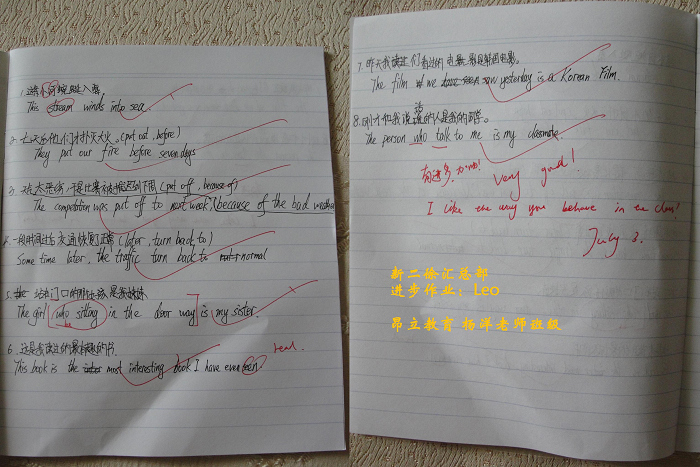 This stream winds into sea.
2. 七天后他们才扑灭火。(put out, before)
They put our fire before seven days
(put off, because of)
The competition was put off to next week (because of the bad weather
(later, turn back to)
Some time later, the traffic turn back to normal
5.
The girl [who sitting in the door way] is my sister.
6. 这是我读过的最有趣的书.
This book is the most interesting book I have ever seen.
read.
7. 昨天我们看过的电影是韩国电影.
The film we saw yesterday is a Korean Film.
8. 刚才和我说话的人是我的同学。
The person who talk to me is my classmate.
有进步, 加油!
very good!
I like the way you behave in the class!
July 2.
新二徐汇总部
进步作业：Leo
昂立教育 杨洋老师班级